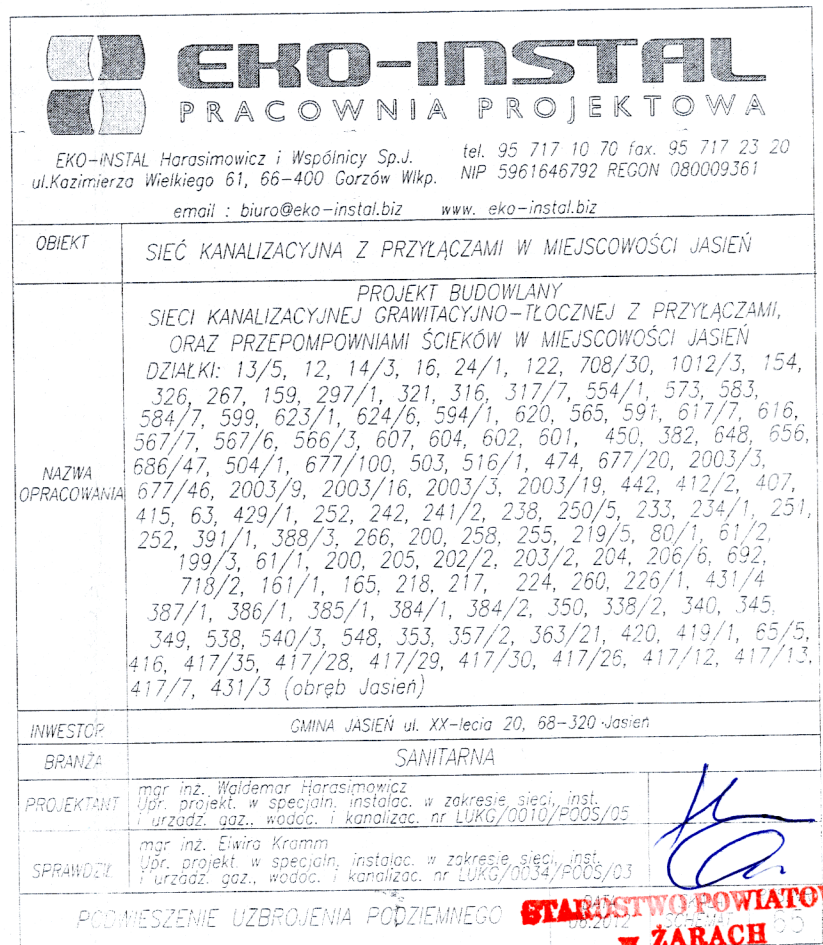 EKO-INSTAL
PRACOWNIA PROJEKTOWA
EKO-INSTAL Harasimowicz i Wspólnicy Sp.J. tel. 95 717 10 70 fax. 95 717 23 20
ul.Kazimierza Wielkiego 61, 66-400 Gorzów Wlkp. NIP 5961646792 REGON 080009361
email : biuro@eko-instal.biz www. eko-instal.biz
OBIEKT
SIEĆ KANALIZACYJNA Z PRZYŁĄCZAMI W MIEJSCOWOŚCI JASIEŃ
NAZWA
OPRACOWANIA
PROJEKT BUDOWLANY
SIECI KANALIZACYJNEJ GRAWITACYJNO-TŁOCZNEJ Z PRZYŁĄCZAMI,
ORAZ PRZEPOMPOWNIAMI ŚCIEKÓW W MIEJSCOWOŚCI JASIEŃ
DZIAŁKI: 13/5, 12, 14/3, 16, 24/1, 122, 708/30, 1012/3, 154,
326, 267, 159, 297/1, 321, 316, 317/7, 554/1, 573, 583,
584/7, 599, 623/1, 624/6, 594/1, 620, 565, 591, 617/7, 616,
567/7, 567/6, 566/3, 607, 604, 602, 601, 450, 382, 648, 656,
686/47, 504/1, 677/100, 503, 516/1, 474, 677/20, 2003/3,
677/46, 2003/9, 2003/16, 2003/3, 2003/19, 442, 412/2, 407,
415, 63, 429/1, 252, 242, 241/2, 238, 250/5, 233, 234/1, 251,
252, 391/1, 388/3, 266, 200, 258, 255, 219/5, 80/1, 61/2,
199/3, 61/1, 200, 205, 202/2, 203/2, 204, 206/6, 692,
718/2, 161/1, 165, 218, 217, 224, 260, 226/1, 431/4
387/1, 386/1, 385/1, 384/1, 384/2, 350, 338/2, 340, 345,
349, 538, 540/3, 548, 353, 357/2, 363/21, 420, 419/1, 65/5,
416, 417/35, 417/28, 417/29, 417/30, 417/26, 417/12, 417/13,
417/7, 431/3 (obręb Jasień)
INWESTOR
GMINA JASIEŃ ul. XX-lecia 20, 68-320 Jasień
BRANŻA
SANITARNA
PROJEKTANT
mgr inż. Waldemar Harasimowicz
Upr. projekt. w specjaln. instalac. w zakresie sieci, inst.
i urządz. gaz., wodoc. i kanalizac. nr LUKG/0010/POOS/05
SPRAWDZIŁ
mgr inż. Elwira Kramm
Upr. projekt. w specjaln. instalac. w zakresie sieci, inst.
i urządz. gaz., wodoc. i kanalizac. nr LUKG/0034/POOS/03
PODWIESZENIE UZBROJENIA PODZIEMNEGO
STAROSTWO POWIATOW
W ŻARACH